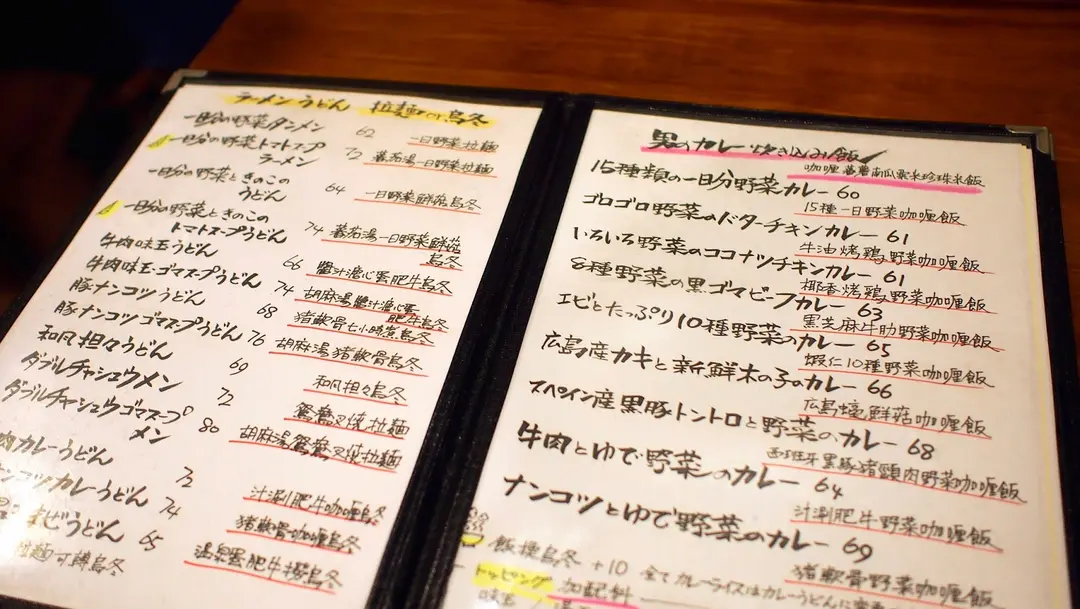 ラーメンうどん 拉麺or烏冬
一日分の野菜タンメン 62 一日野菜拉麺
一日分の野菜トマトスープ
ラーメン 72 蕃茄湯一日野菜拉麺
一日分の野菜ときのこの
うどん 64 一日野菜鮮菇烏冬
一日分の野菜ときのこの
トマトスープうどん 74 蕃茄湯一日野菜鮮菇
烏冬
牛肉味玉うどん 66 醬汁溏心蛋肥牛烏冬
牛肉味玉・ゴマスープうどん 74 胡麻湯醬汁溏心蛋
肥牛烏冬
豚ナンコツうどん 68 猪軟骨七小時煮烏冬
豚ナンコツゴマスープうどん 76 胡麻湯猪軟骨烏冬
和風担々うどん 69 和風担々烏冬
ダブルチャシュウメン 72 鴛鴦叉焼拉麺
ダブルチャシュウゴマスープ
メン 80 胡麻湯鴛鴦叉焼拉麺
肉カレーうどん 72 汁涮肥牛咖喱烏冬
ンコツカレーうどん 74 猪軟骨咖喱烏冬
まぜうどん 65 温泉蛋肥牛撈烏冬
拉麺可轉烏冬
男のカレー 炊き込み飯
咖喱 蕃薯南瓜粟米珍珠米飯
15種類の一日分野菜カレー 60
15種一日野菜咖喱飯
ゴロゴロ野菜のバターチキンカレー 61
牛油烤鶏野菜咖喱飯
いろいろ野菜のココナツチキンカレー 61
椰香烤鶏野菜咖喱飯
8種野菜の黒ゴマビーフカレー 63
黒芝麻牛肋野菜咖喱飯
エビとたっぷり10種野菜のカレー 65
蝦仁10種野菜咖喱飯
広島産カキと新鮮木の子のカレー 66
広島蠔鮮菇咖喱飯
スペイン産黒豚トントロと野菜のカレー 68
西班牙黒豚猪頸肉野菜咖喱飯
牛肉とゆで野菜のカレー 64
汁涮肥牛野菜咖喱飯
ナンコツとゆで野菜のカレー 69
猪軟骨野菜咖喱飯
飯換烏冬 +10 全てカレーライスはカレーうどんに
トッピング 加配料
味玉